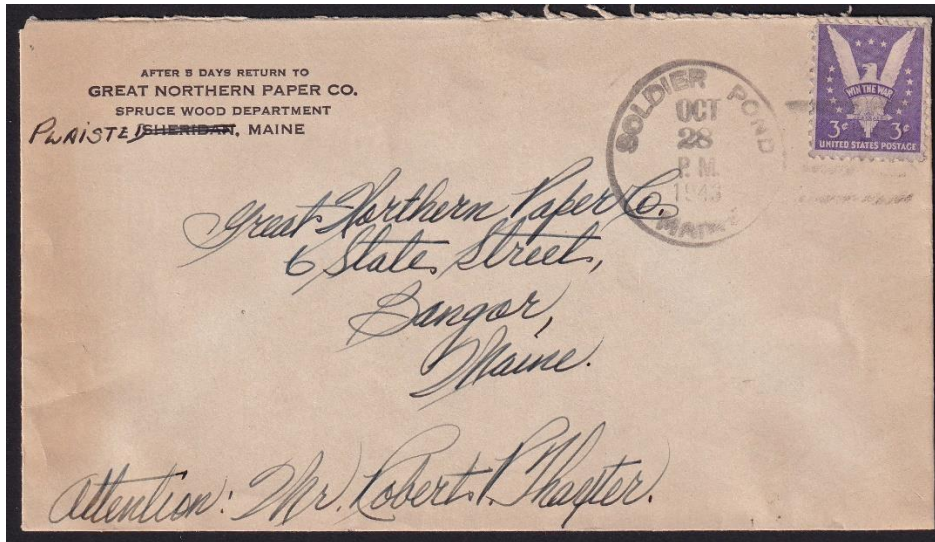 AFTER 5 DAYS RETURN TO
GREAT NORTHERN PAPER CO.
SPRUCE WOOD DEPARTMENT
PLAISTED SHERIDAN, MAINE
SOLDIER POND
OCT
28
P.M.
1943
MAINE
WIN THE WAR
3¢ 3¢
UNITED STATES POSTAGE
Great Northern Paper Co.
6 State Street,
Bangor,
Maine.
Attention: Mr. Robert P. Thaxter.